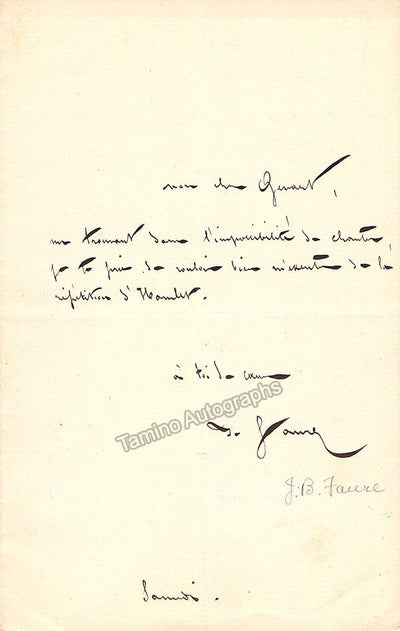 mon cher Gevaert,
me trouvant dans l'impossibilité de chanter,
je te prie de vouloir bien m'exempter de la
répétition d'Hamlet.
à toi de cœur
Tamino Autographs
J. Faure
J.B. Faure
Samedi.